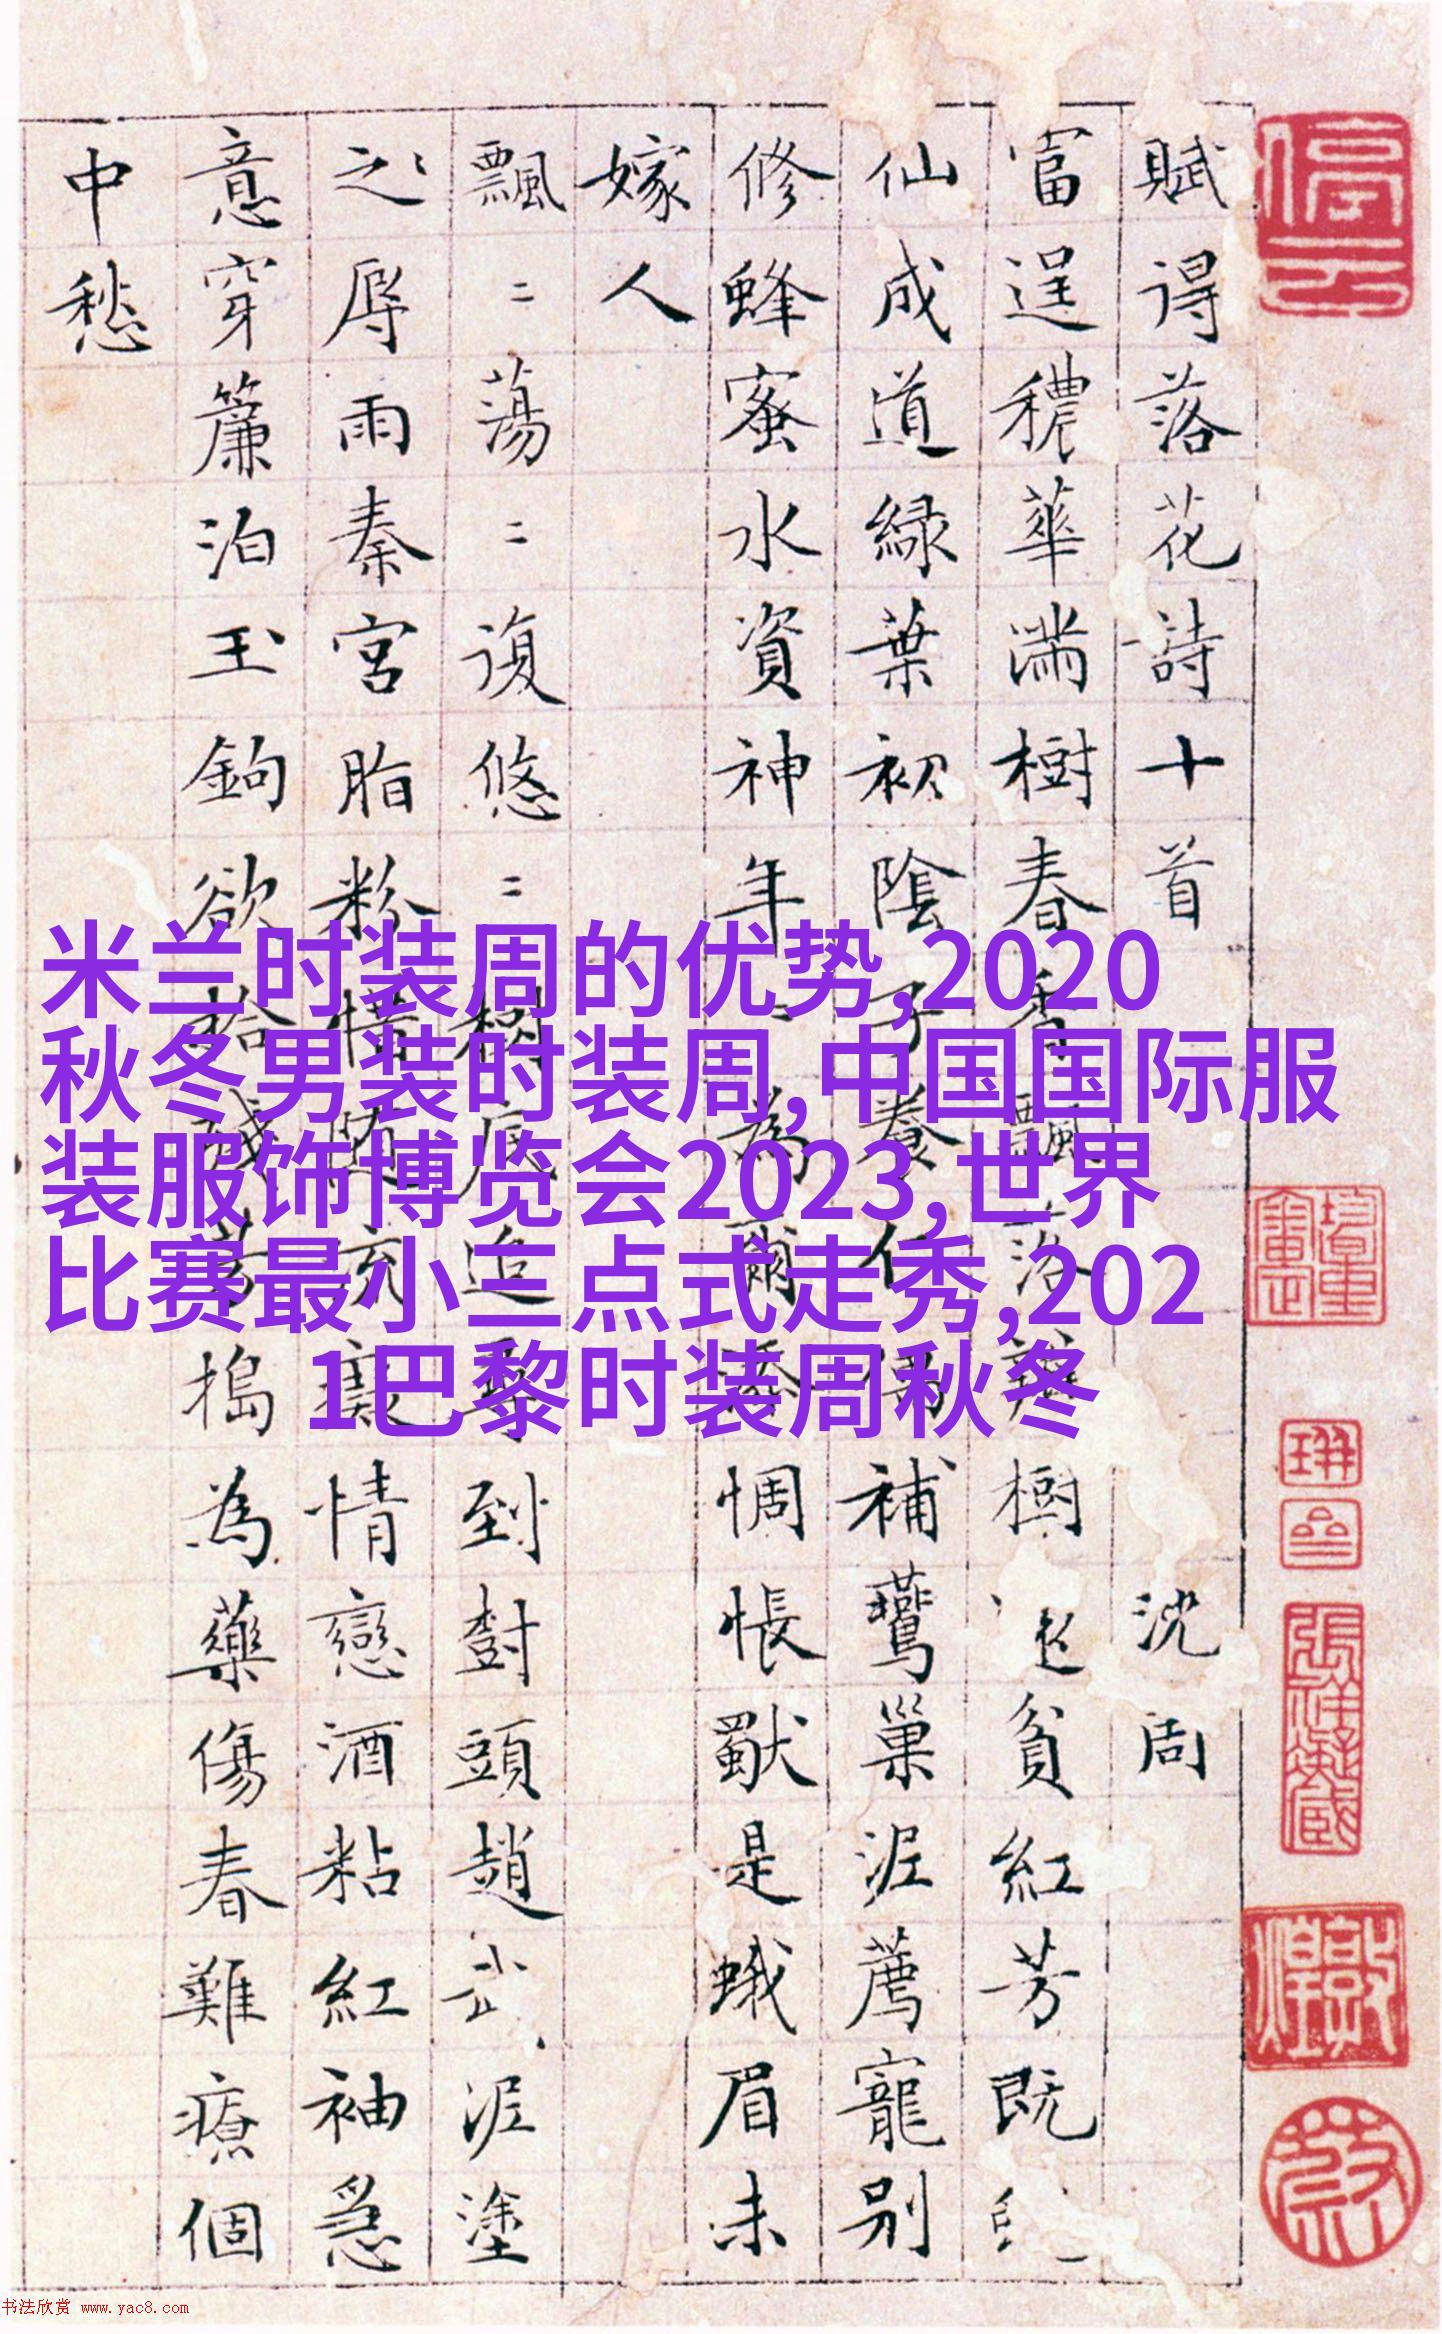 賦得落花詩十首 沈周
富逞穠華滿樹春香飄落瓣樹 貧紅芳既
仙成道綠葉初陰子養仁偶補鶯巢泥薦寵別
修蜂蜜水資神年〻為爾添惆悵獨是蛾眉未
嫁人
飄〻蕩〻復悠〻樹底追尋到樹頭趙武泥塗
之辱雨秦宮脂粉惜隨流癡情戀酒粘紅袖急
意穿簾泊玉鉤欲拾殘芳搗為藥傷春難療個
中愁
米兰时装周的优势,2020
秋冬男装时装周,中国国际服
装服饰博览会2023,世界
比赛最小三点式走秀,202
1巴黎时装周秋冬
书法欣赏 www.yac8.com